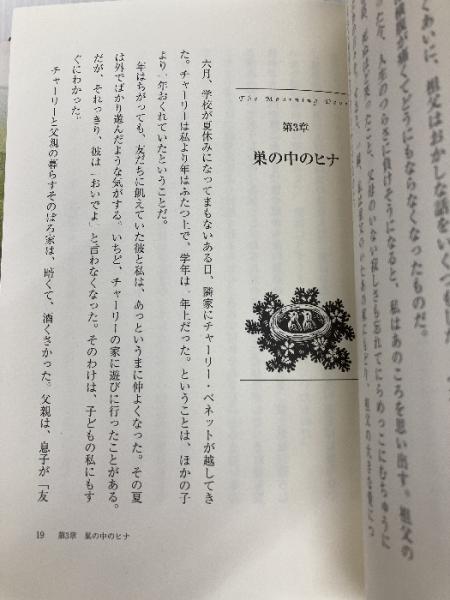 くあいに、祖父はおかしな話をいくつもした
横隔膜が痛くてどうにもならなくなったものだ。
人生のつらさに負けそうになると、私はあのころを思い出す。祖父の
The Mourning Dove
第3章
巣の中のヒナ
六月、学校が夏休みになってまもないある日、隣家にチャーリー・ベネットが越してき
た。チャーリーは私より年はふたつ上で、学年は一年上だった。ということは、ほかの子
より一年おくれていたということだ。
年はちがっても、友だちに飢えていた彼と私は、あっというまに仲よくなった。その夏
は外でばかり遊んだような気がする。いちど、チャーリーの家に遊びに行ったことがある。
だが、それっきり、彼は「おいでよ」と言わなくなった。そのわけは、子どもの私にもす
ぐにわかった。
チャーリーと父親の暮らすそのぼろ家は、暗くて、酒くさかった。父親は、息子が「友
19 第3章 巣の中のヒナ